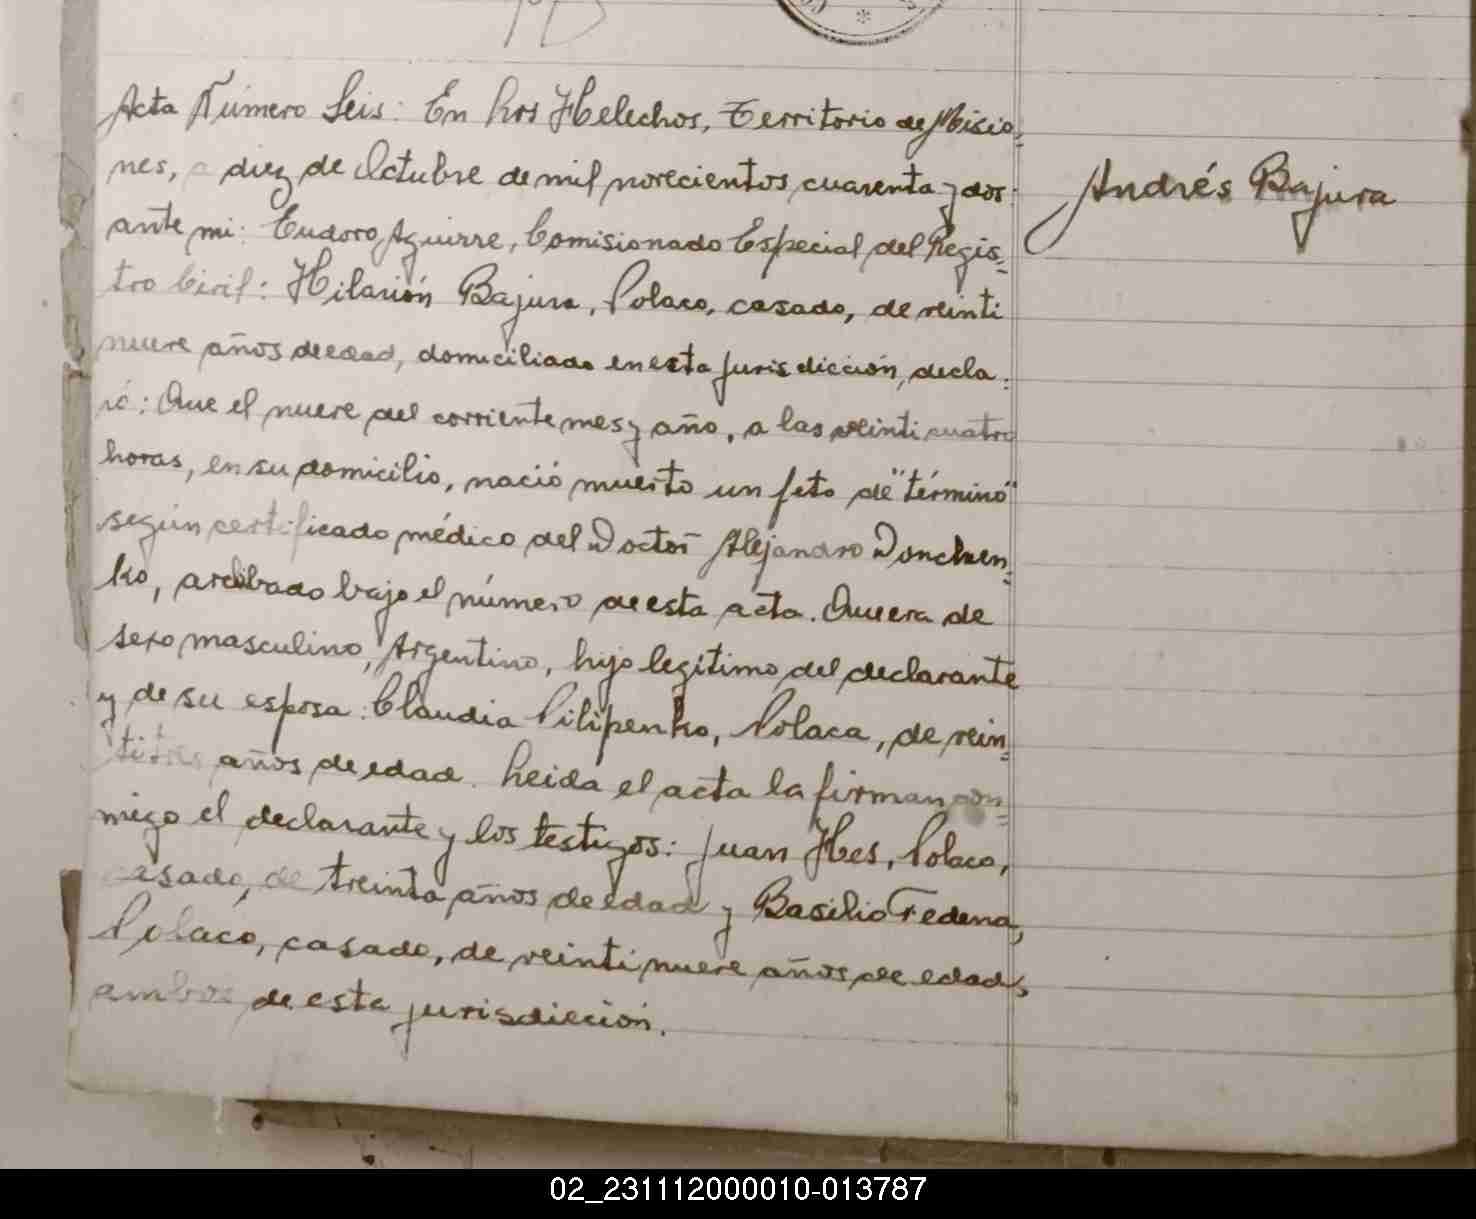 Acta Número Seis: En Los Helechos, Territorio de Misio=
nes, a diez de Octubre de mil novecientos cuarenta y dos:
ante mi: Eudoro Aguirre, Comisionado Especial del Regis=
tro Civil: Hilarión Bajura, Polaco, casado, de veinti
nueve años de edad, domiciliado en esta jurisdicción, decla=
ró: Que el nueve del corriente mes y año, a las veinticuatro
horas, en su domicilio, nació muerto un feto de "término"
según certificado médico del Doctor Alejandro Donchen=
ko, archivado bajo el número de esta acta. Que era de
sexo masculino, Argentino, hijo legítimo del declarante
y de su esposa: Claudia Pilipenko, Polaca, de vein=
titres años de edad. Leida el acta la firman con=
migo el declarante y los testigos: Juan Hes, Polaco,
casado, de treinta años de edad y Basilio Fedena,
Polaco, casado, de veintinueve años de edad,
ambos de esta jurisdicción.
Andrés Bajura
02_231112000010-013787